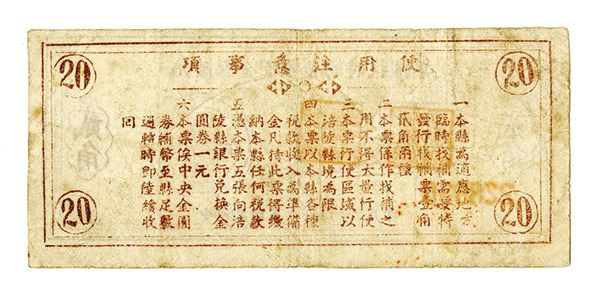 20
使用注意事項
20
一本縣為適應地方
臨時找補需要特
發行找補票壹角
貳角兩種
二本票係作找補之
用不得大量行使
三本票行使區域以
涪陵縣境為限
四本票以本縣各種
稅款收入為準備
金凡持此票得繳
納本縣任何稅款
五憑本票五張向涪
陵縣銀行兌換金
圓券一元
六本票俟中央金圓
券輔幣至縣足敷
週轉時即陸續收
回
20
20